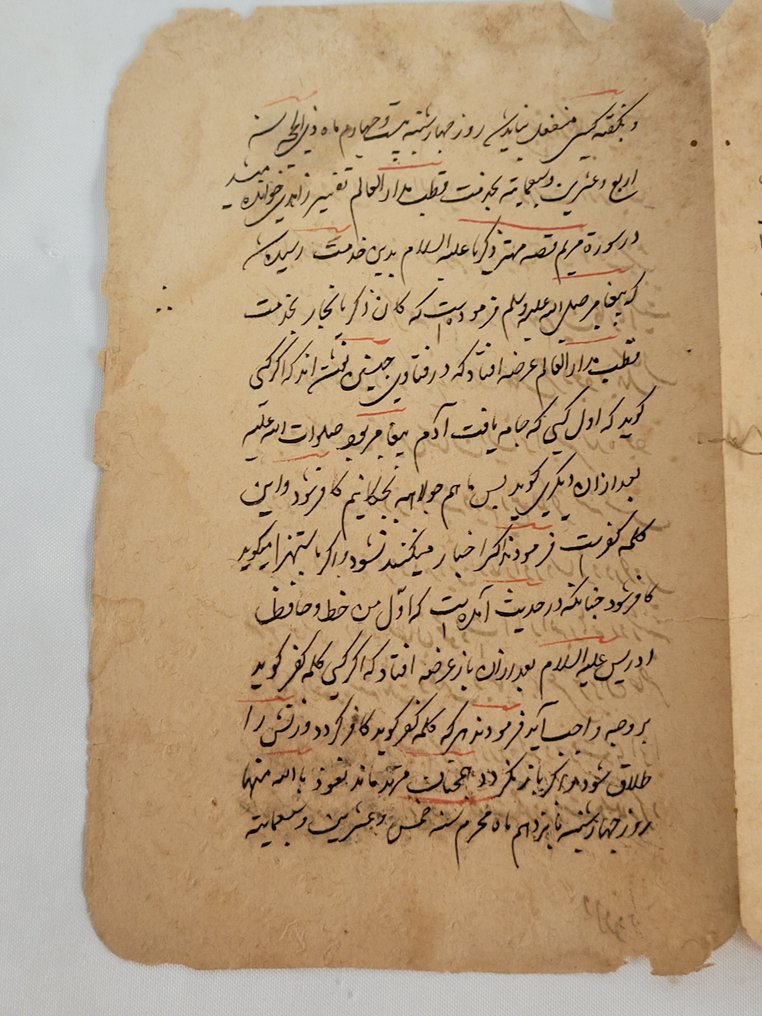 و بگفته کسی منفعل نباید شد روز چهارشنبه بیست و چهارم ماه ذی الحجه سنه
اربع و عشرین و سبعمایته بخدمت قطب مدار العالم تفسیر زاهدی خوانده میشد
در سورة مریم قصه مهتر ذکریا علیه السلام بدین خدمت رسیدن
که پیغامبر صلی الله علیه وسلم فرموده است که کان ذکریا نجار بخدمت
قطب مدار العالم عرضه افتاد که در فتاوی چنین نبشته اند که اگر کسی
گوید که اول کسی که جامه بافت آدم پیغامبر بود صلوات الله علیه
بعد ازان دیگری گوید پس ما هم جولاهه بچگانیم کافر شود و این
کلمه کفر است فرمودند اگر اخبار میکنند نشود و اگر باستهزا میگوید
کافر شود چنانکه در حدیث آمده است که اول من خط و خاط
ادریس علیه السلام بعد ازان باز عرضه افتاد که اگر کسی کلمه کفر گوید
بر وجه واجب آید فرمودند هر که کلمه کفر گوید کافر گردد و زنش را
طلاق شود و اگر باز نگردد همچنان مرتد ماند نعوذ بالله منها
روز چهارشنبه پانزدهم ماه محرم سنه خمس و عشرین و سبعمایته